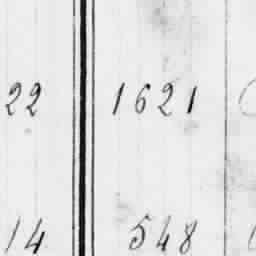 22 1621
14 548